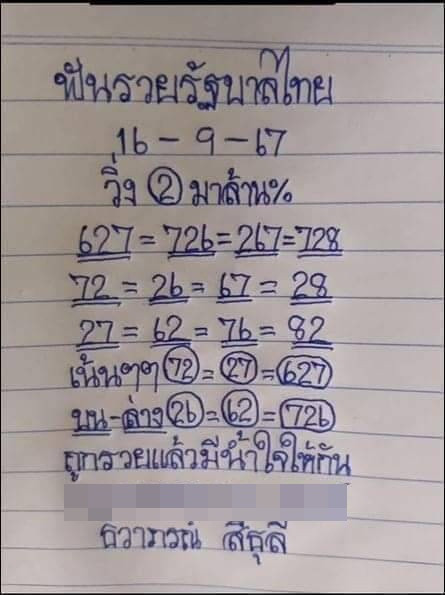 ฟันรวยรัฐบาลไทย
16 - 9 - 67
วิ่ง 2 มาล้าน%
627 = 726 = 267 = 728
72 = 26 = 67 = 28
27 = 62 = 76 = 82
เน้นๆๆ 72 = 27 = 627
บน-ล่าง 26 = 62 = 726
ถูกรวยแล้วมีน้ำใจให้กัน
ธวาภรณ์ สีธุลี